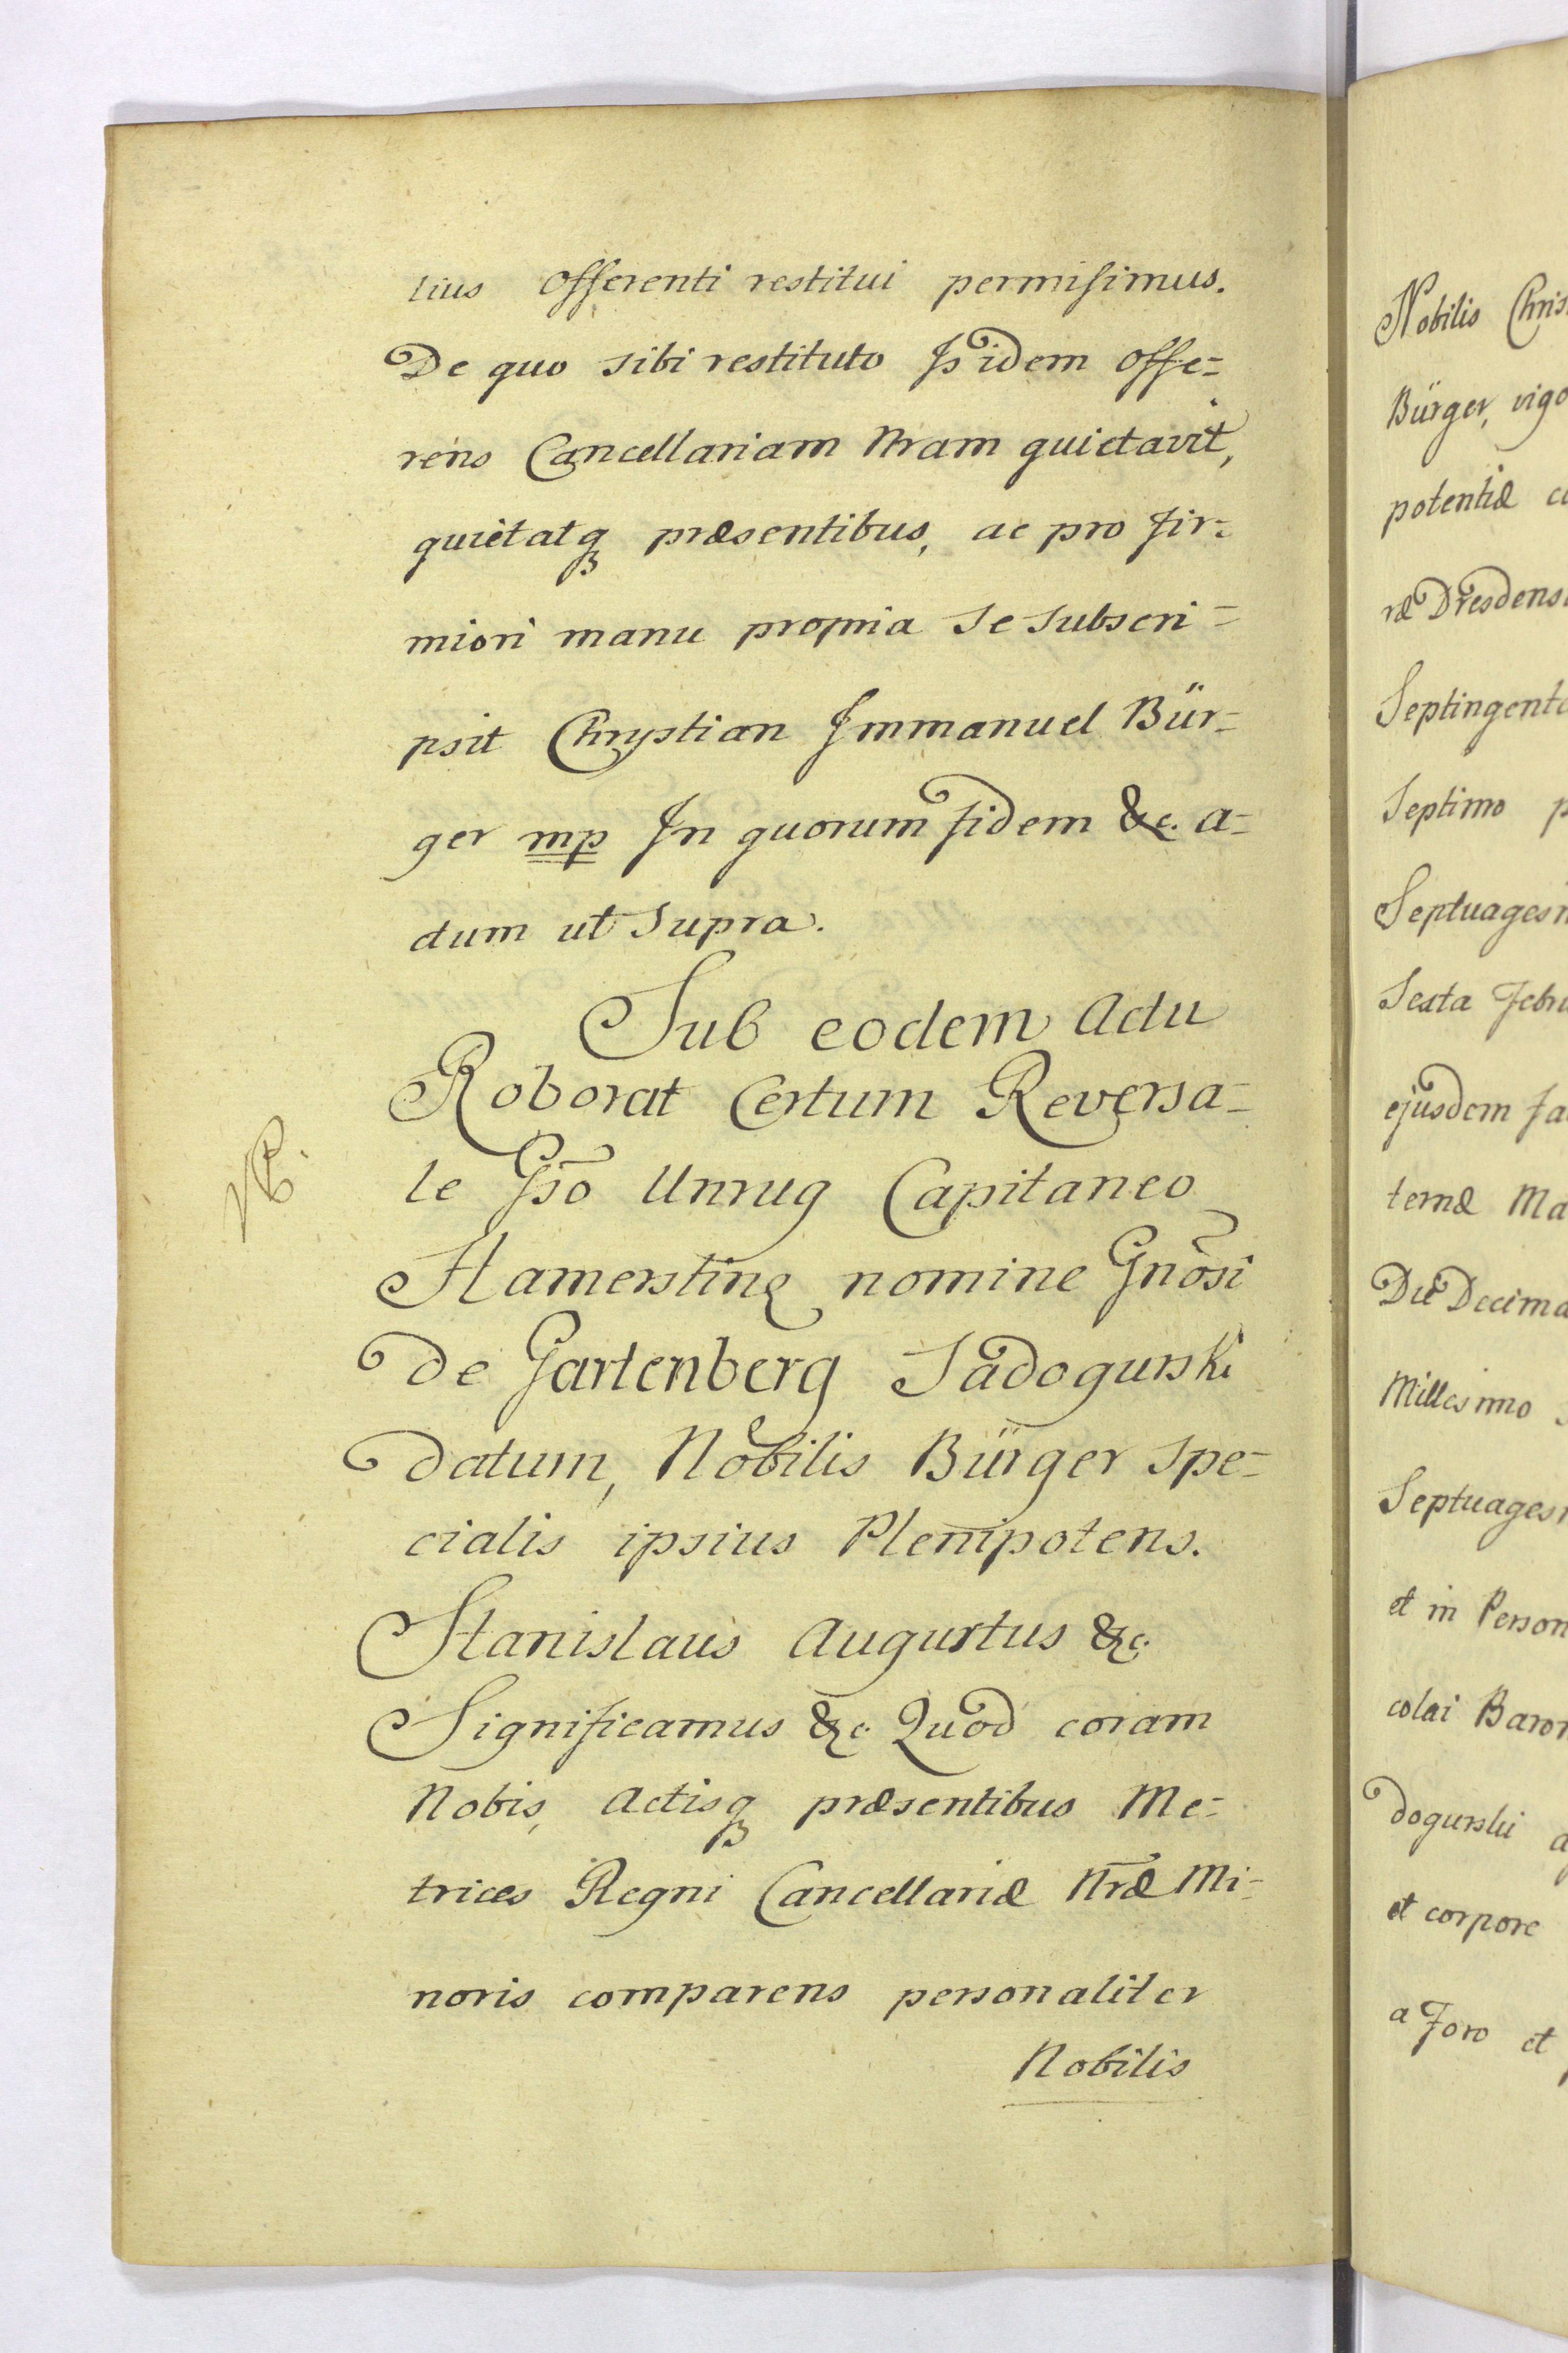 tius Offerenti restitui permisimus.
De quo sibi restituto Isidem Offe=
rens Cancellariam Nram quietavit,
quietatq præsentibus, ac pro fir=
miori manu propria se subscri=
psit Chrystian Immanuel Bür=
ger mp In quorum fidem &c. A=
ctum ut supra.
Sub eodem Actu
Roborat Certum Reversa=
le Gso Unrug Capitaneo
Hamerstinę nomine Gnōsi
de Gartenberg Sadogurski
datum, Nobilis Bürger spe=
cialis ipsius Plenipotens.
Stanislaus Augustus &c.
Significamus &c. Quod coram
Nobis, Actisq præsentibus Me=
trices Regni Cancellariæ Nræ Mi=
noris comparens personaliter
Nobilis
Nobilis
Bürger,
potentiæ
ræ
Septimo
Sexta
ejusdem
ternæ
Die Decima
Millesimo
et in
colai
dogurski
et corpore
a Foro et